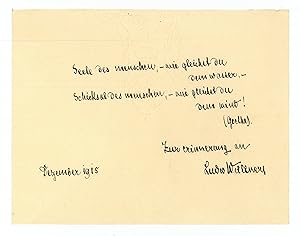 Seele des menschen, – wie gleichst du
dem wasser, –
Schicksal des menschen, – wie gleichst du
dem wind!
(Goethe).
Zur erinnerung an
Dezember 1915
Ludw Wüllner